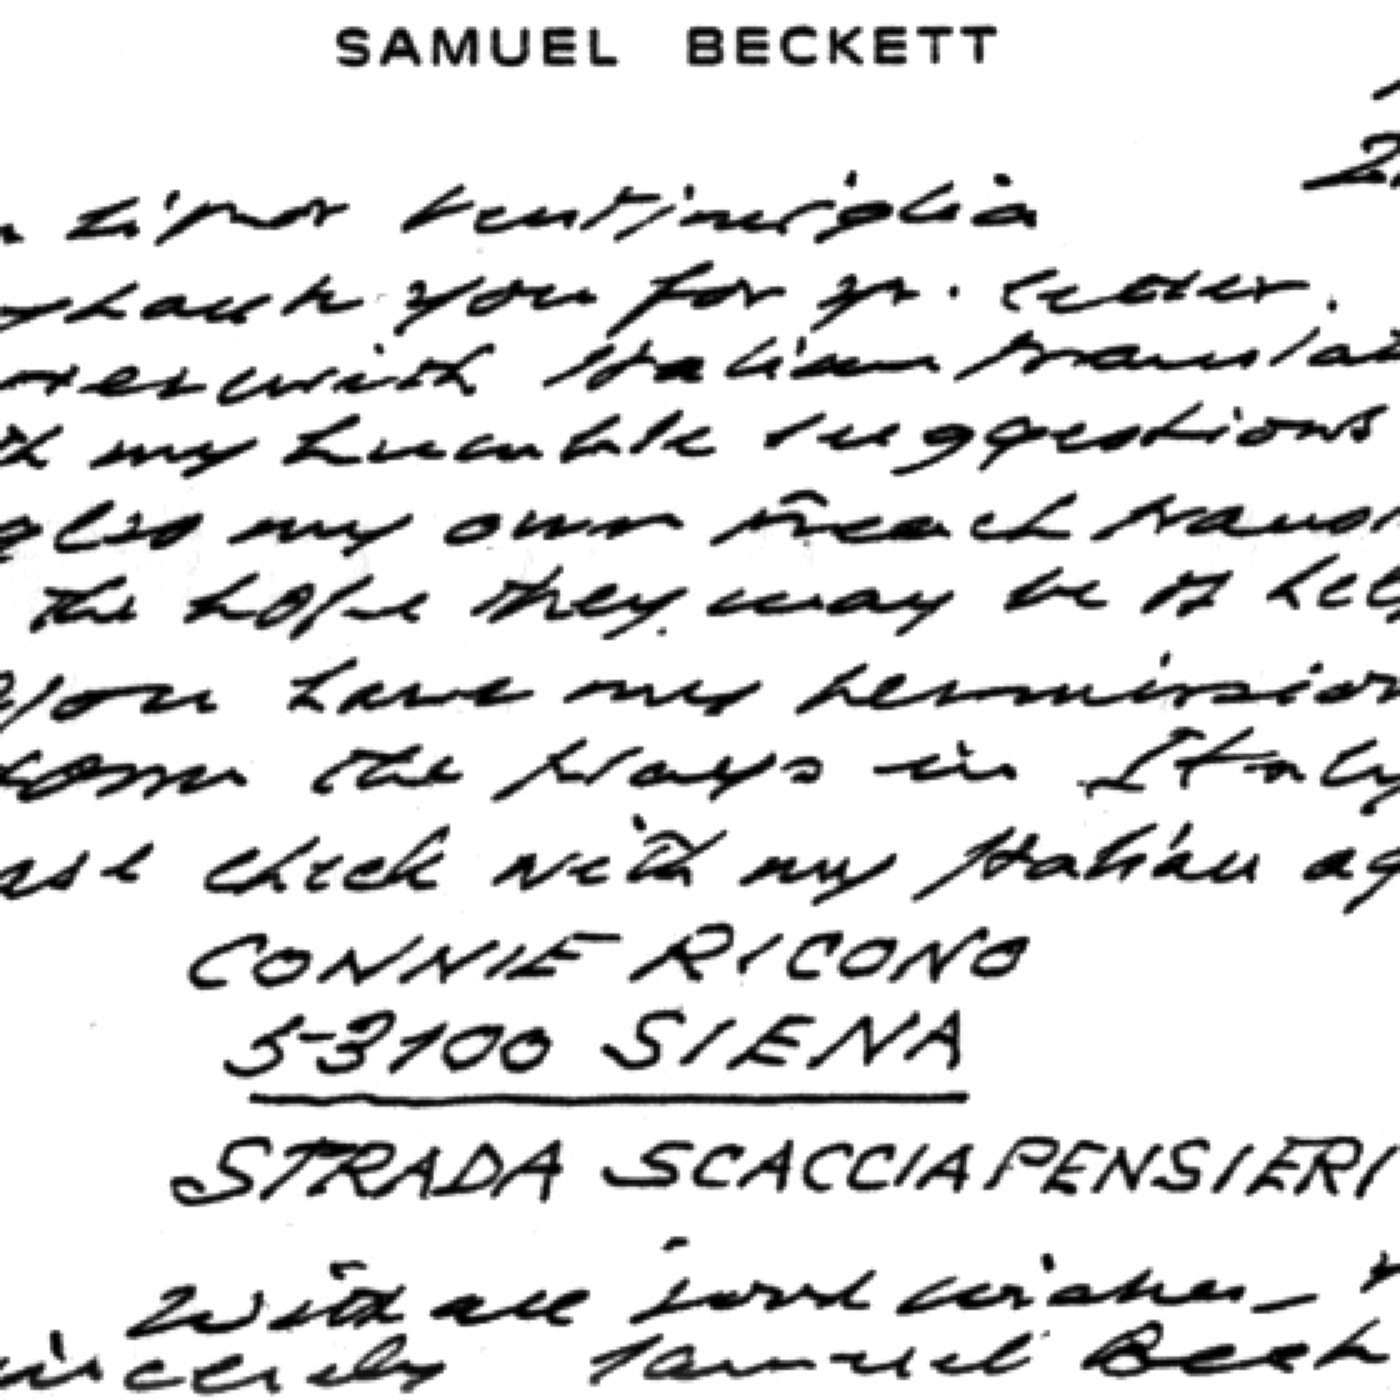 SAMUEL BECKETT
Signor Ventimiglia
thank you for yr. letter.
Herewith Italian translat
my humble suggestions
my own French trans
the hope they may be of hel
you have my permission
the plays in Italy
ase check with my Italian ag
CONNIE RICONO
53100 SIENA
STRADA SCACCIAPENSIERI
With all good wishes,
sincerely Samuel Beck